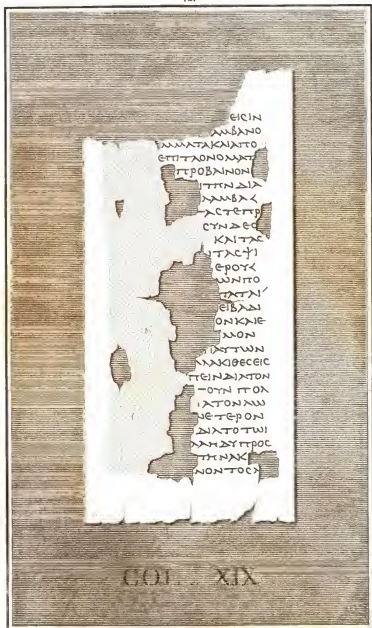 ΕΙϹΙΝ
ΑΜΒΑΝΟ
ΑΜΜΑΤΑΚΑΙΑΠΟ
ΕΠΙΤΑΟΝΟΜΑΤ
ΠΡΟΒΑΙΝΟΝ
ΙΤΗΝΔΙΑ
ΛΑΜΒΑ
ΑϹΤΕΠΡ
ϹΥΝΔΕϹ
ΚΑΙΤΑϹ
ΙΤΑϹΨΙ
ΕΡΟΥϹ
ΩΝΠΟ
ΤΑΤΑΙ
ΕΙΒΑΔΙ
ΟΝΚΑΙΕ
ΜΟΝ
ΑΥΤΩΝ
ΛΑΚΙΘΕϹΕΙϹ
ΠΕΙΝΔΙΑΤΟΝ
ΟΥΝΠΟΛ
ΑΤΟΝΑΩ
ΝΕΤΕΡΟΝ
ΔΙΑΤΟΤΩΙ
ΛΗΔΥΠΡΟϹ
ΤΗΝΑΚ
ΝΟΝΤΟϹΛ
COL. XIX